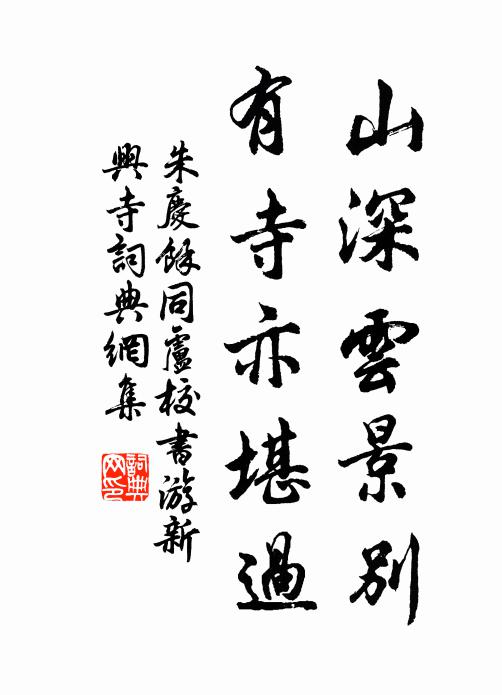 山深雲景別
有寺亦堪過
朱慶餘同盧校書游新
興寺詞典網集
詞典
网印